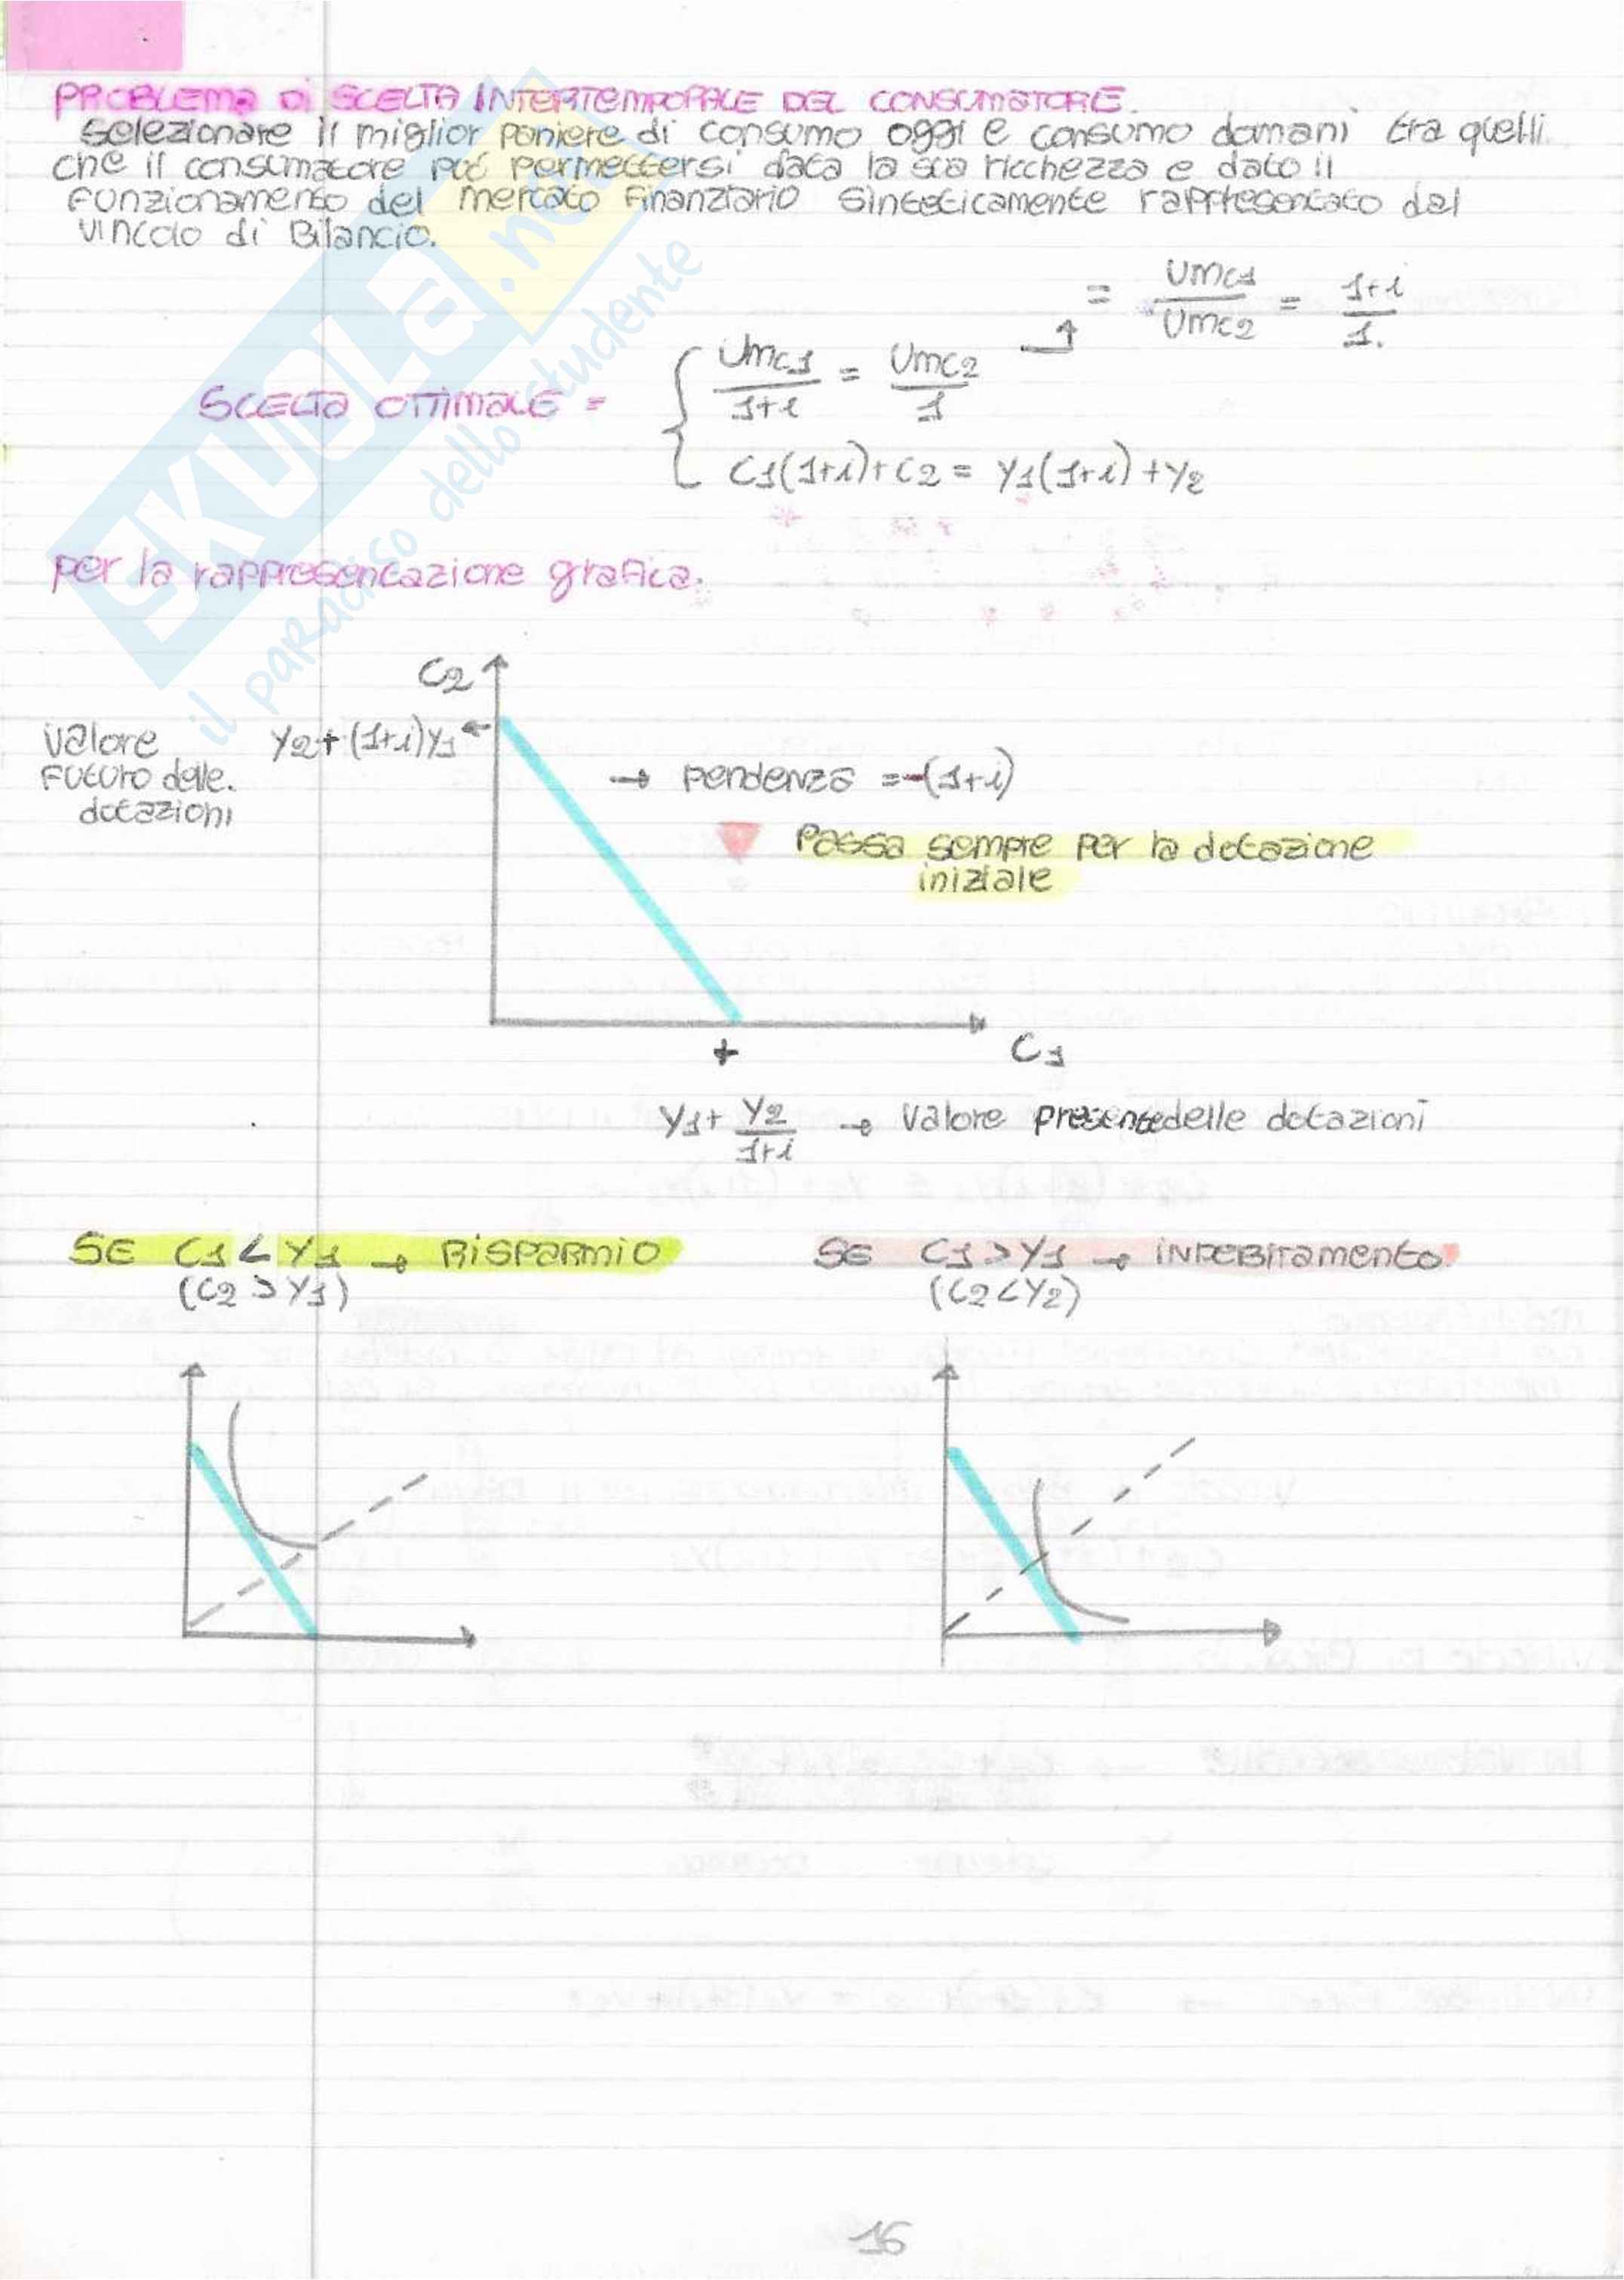 PROBLEMA DI SCELTA INTERTEMPORALE DEL CONSUMATORE.
Selezionare il miglior paniere di consumo oggi e consumo domani tra quelli
che il consumatore può permettersi data la sua ricchezza e dato il
funzionamento del mercato finanziario sinteticamente rappresentato dal
vincolo di Bilancio.
= UMC1/UMC2 = 1+i/1.
SCELTA OTTIMALE = { UMC1/1+i = UMC2/1
C1(1+i)+C2 = Y1(1+i)+Y2
per la rappresentazione grafica.
C2
Valore
Futuro delle.
dotazioni
Y2+(1+i)Y1
→ pendenza = -(1+i)
Passa sempre per la dotazione
iniziale
C1
Y1+ Y2/1+i → Valore presente delle dotazioni
SE C1 < Y1 → RISPARMIO
(C2 > Y1)
SE C1 > Y1 → INDEBITAMENTO
(C2 < Y2)
16
SKUOLA.net
il paradiso dello studente